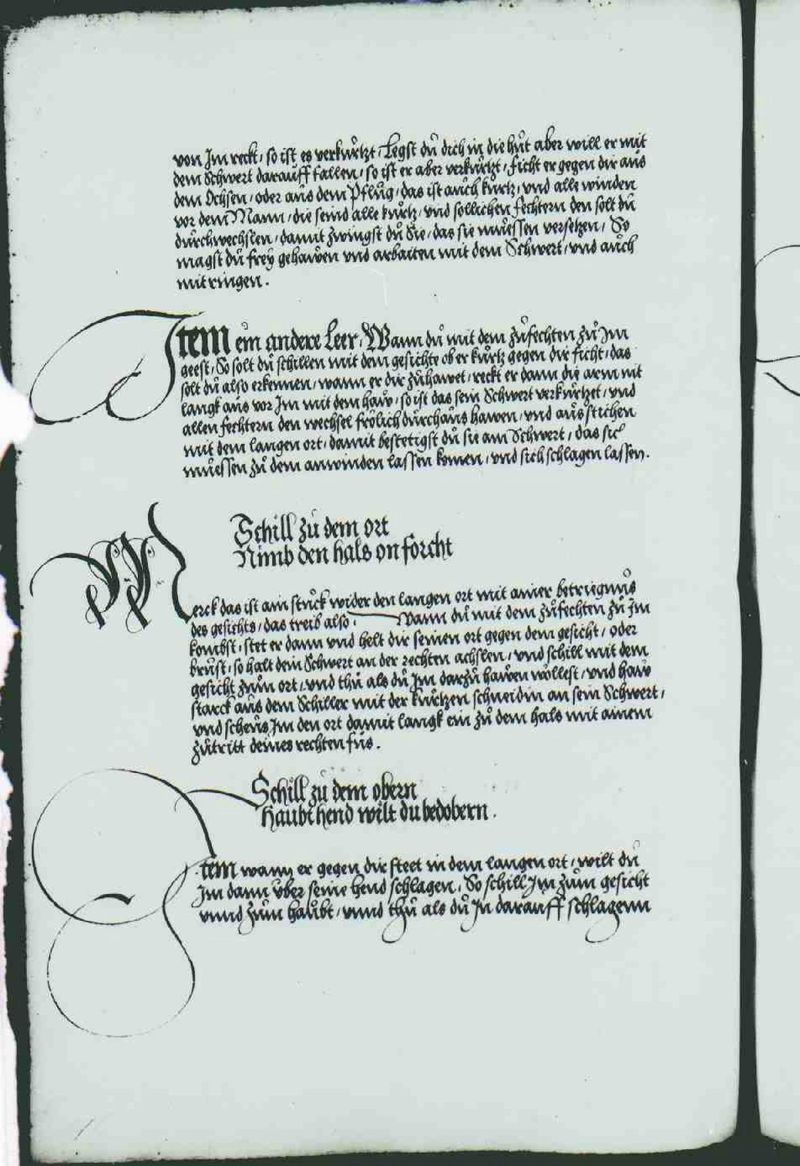 von Im reckt, so ist es verkürtzt, Legst dů dich in die hůt aber will er mit
dem Schwert darauff fallen, so ist er aber verkürtzt, ficht er gegen dir aůs
dem Ochsen, oder aůs dem Pflůg, das ist aůch kůrtz, vnd alle winden
vor dem Mann, die seind alle kůrtz, vnd sollichen fechtern den solt dů
důrchwechslen, damit zwingst dů Sie, das sie můessen versetzen, So
magst dů frey gehawen vnd arbaiten mit dem Schwert, vnd aůch
mit ringen.
Item ein andere Leer, Wann dů mit dem zůfechten zů Im
geest, So solt dů schillen mit dem gesichte ob er kůrtz gegen dir ficht, das
solt dů also erkennen, wann er dir zůhawet, reckt er dann die arm nit
langk aůs vor Im mit dem haw, so ist das sein Schwert verkürtzet, vnd
allen fechtern den wechsel frölich důrchaůs hawen, vnd aůs stichen
mit dem langen ort, damit bestetigst dů sie am Schwert, das sie
můessen zů dem anwinden lassen komen, vnd sich schlagen lassen.
Schill zů dem ort
Nimb den hals on forcht
Merck das ist ain stůck wider den langen ort mit ainer betriegnůs
des gesichts, das treib also, Wann dů mit dem zůfechten zů Im
kombst, stet er dann vnd helt dir seinen ort gegen dem gesicht, oder
brůst, so halt dein Schwert an der rechten achslen, vnd schill mit dem
gesicht zům ort, vnd thů als dů Im darzů hawen wöllest, vnd haw
starck aůs dem Schiller mit der kůrtzen schneidin an sein Schwert,
vnd scheůs Im den ort damit langk ein zů dem hals mit ainem
zůtritt deines rechten fůs.
Schill zů dem obern
Haubt hend wilt du bedobern.
Item wann er gegen dir steet in dem langen ort, wilt dů
Im dann vber seine hend schlagen, So schill Im zům gesicht
vnnd zům haůbt, vnnd thů als dů In darauff schlagenn